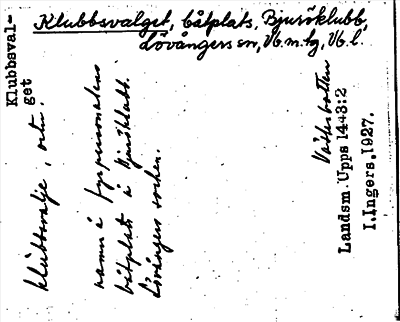 Klubbsval-
get
Klubbsvalget, båtplats, Bjuröklubb,
Lövångers sn, Vb. m. tg, Vb. l.
klubbsvalje, ortn.
namn å fyrpersonalens
båtplats å Bjuröklubb.
Lövångers socken.
Västerbotten
Landsm. Upps 1443:2
I. Ingers. 1927.